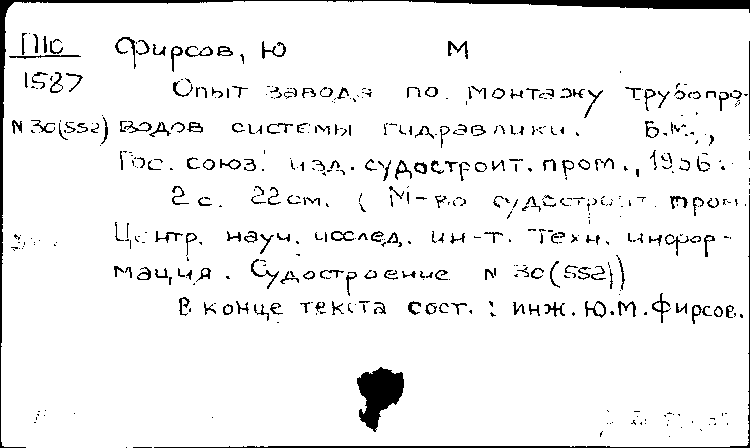 П10 Фирсов, Ю М
1587 Опыт завода по монтажу трубопро-
N 30(552) водов системы гидравлики. Б.М.,
Гос. союз. изд. судостроит. пром., 1956.
2 с. 22 см. (М-во судостроит. пром.
Центр. науч. исслед. ин-т. Техн. инфор-
мация. Судостроение N 30(552))
В конце текста сост.: инж. Ю.М. Фирсов.